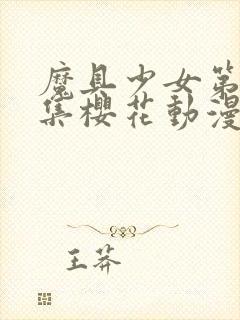 魔具少女第
集櫻花動漫
王莽